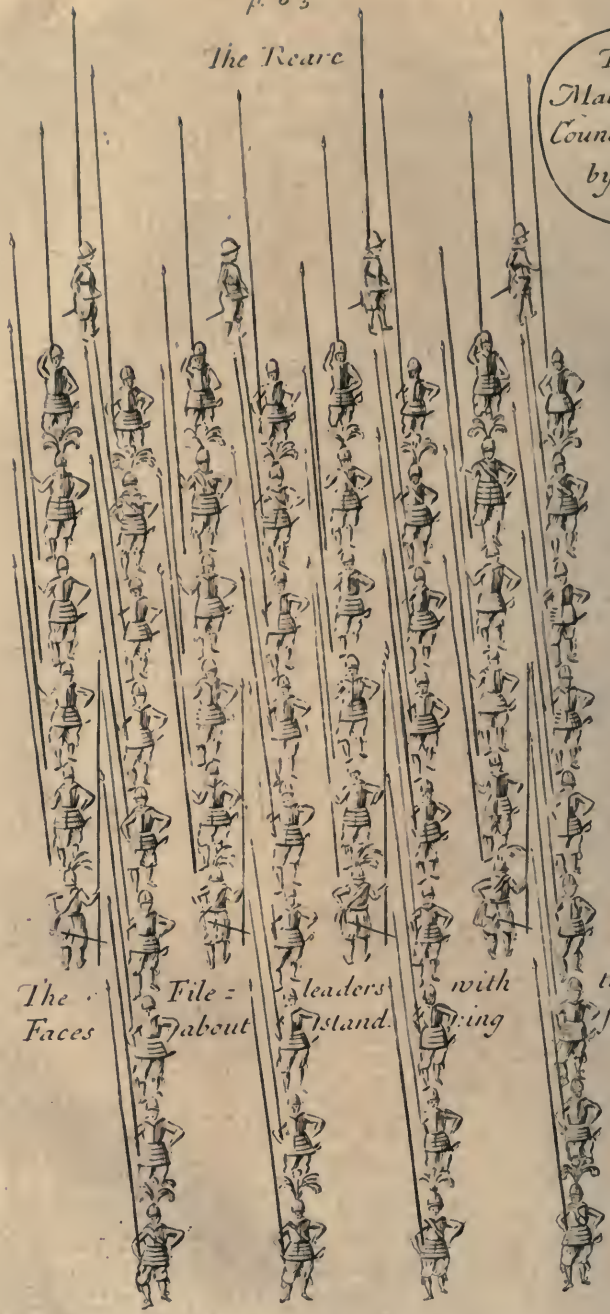 p. 63
The Reare
Coun
by
The File = leaders with
Faces about stand ing